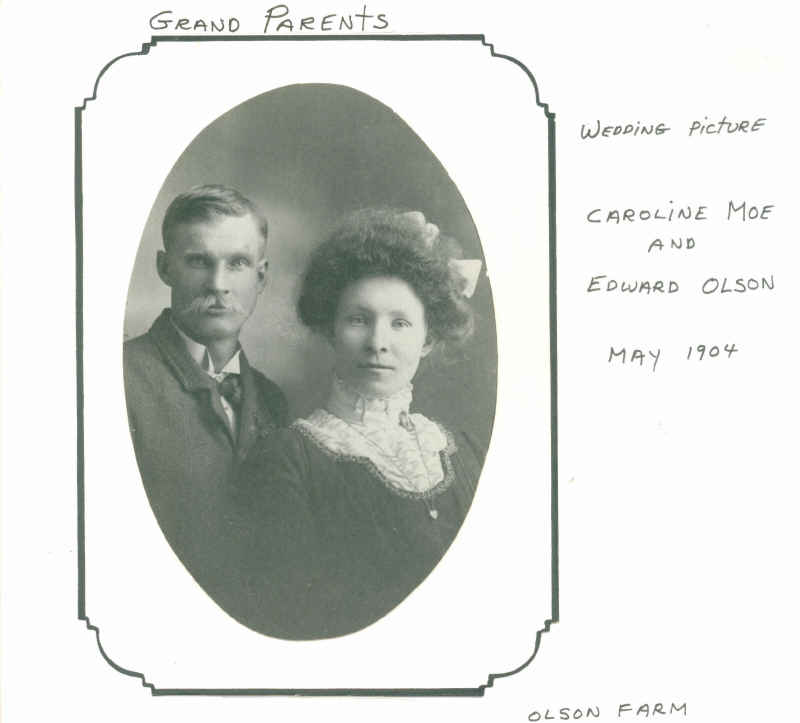 GRAND PARENTS
WEDDING PICTURE
CAROLINE MOE
AND
EDWARD OLSON
MAY 1904
OLSON FARM